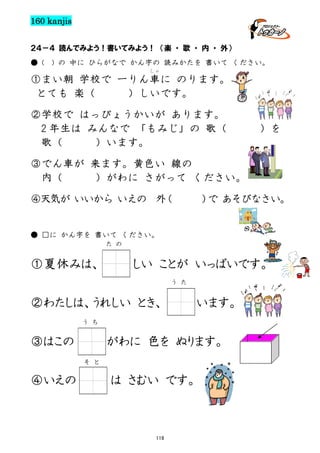 160 kanjis
プロジェクト
トゥカーノ
24－4 読んでみよう！書いてみよう！（楽・歌・内・外）
●（　）の 中に ひらがなで かん字の 読みかたを 書いて ください。
しゃ
①まい朝 学校で 一りん車に のります。
とても 楽（　　　）しいです。
②学校で はっぴょうかいが あります。
2年生は みんなで 「もみじ」の 歌（　　　）を
歌（　　　）います。
③でん車が 来ます。黄色い 線の
内（　　　）がわに さがって ください。
④天気が いいから いえの 外（　　　）で あそびなさい。
●□に かん字を 書いて ください。
たの
①夏休みは、□しい ことが いっぱいです。
うた
②わたしは、うれしい とき、□います。
うち
③はこの □がわに 色を ぬります。
そと
④いえの □は さむい です。
118